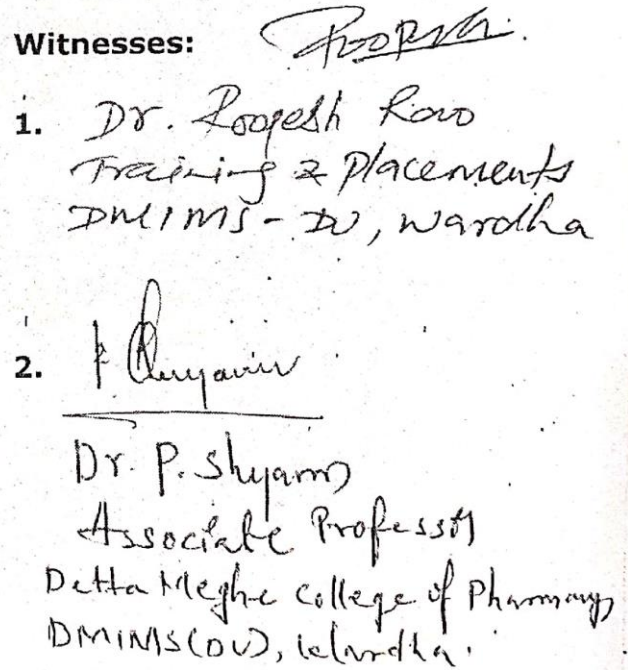 Witnesses:
1. Dr. Roopesh Rao
Training & Placements
DMIMS - DU, Wardha
2.
Dr. P. Shyam
Associate Professor
Datta Meghe College of Pharmacy
DMIMS(DU), Wardha.